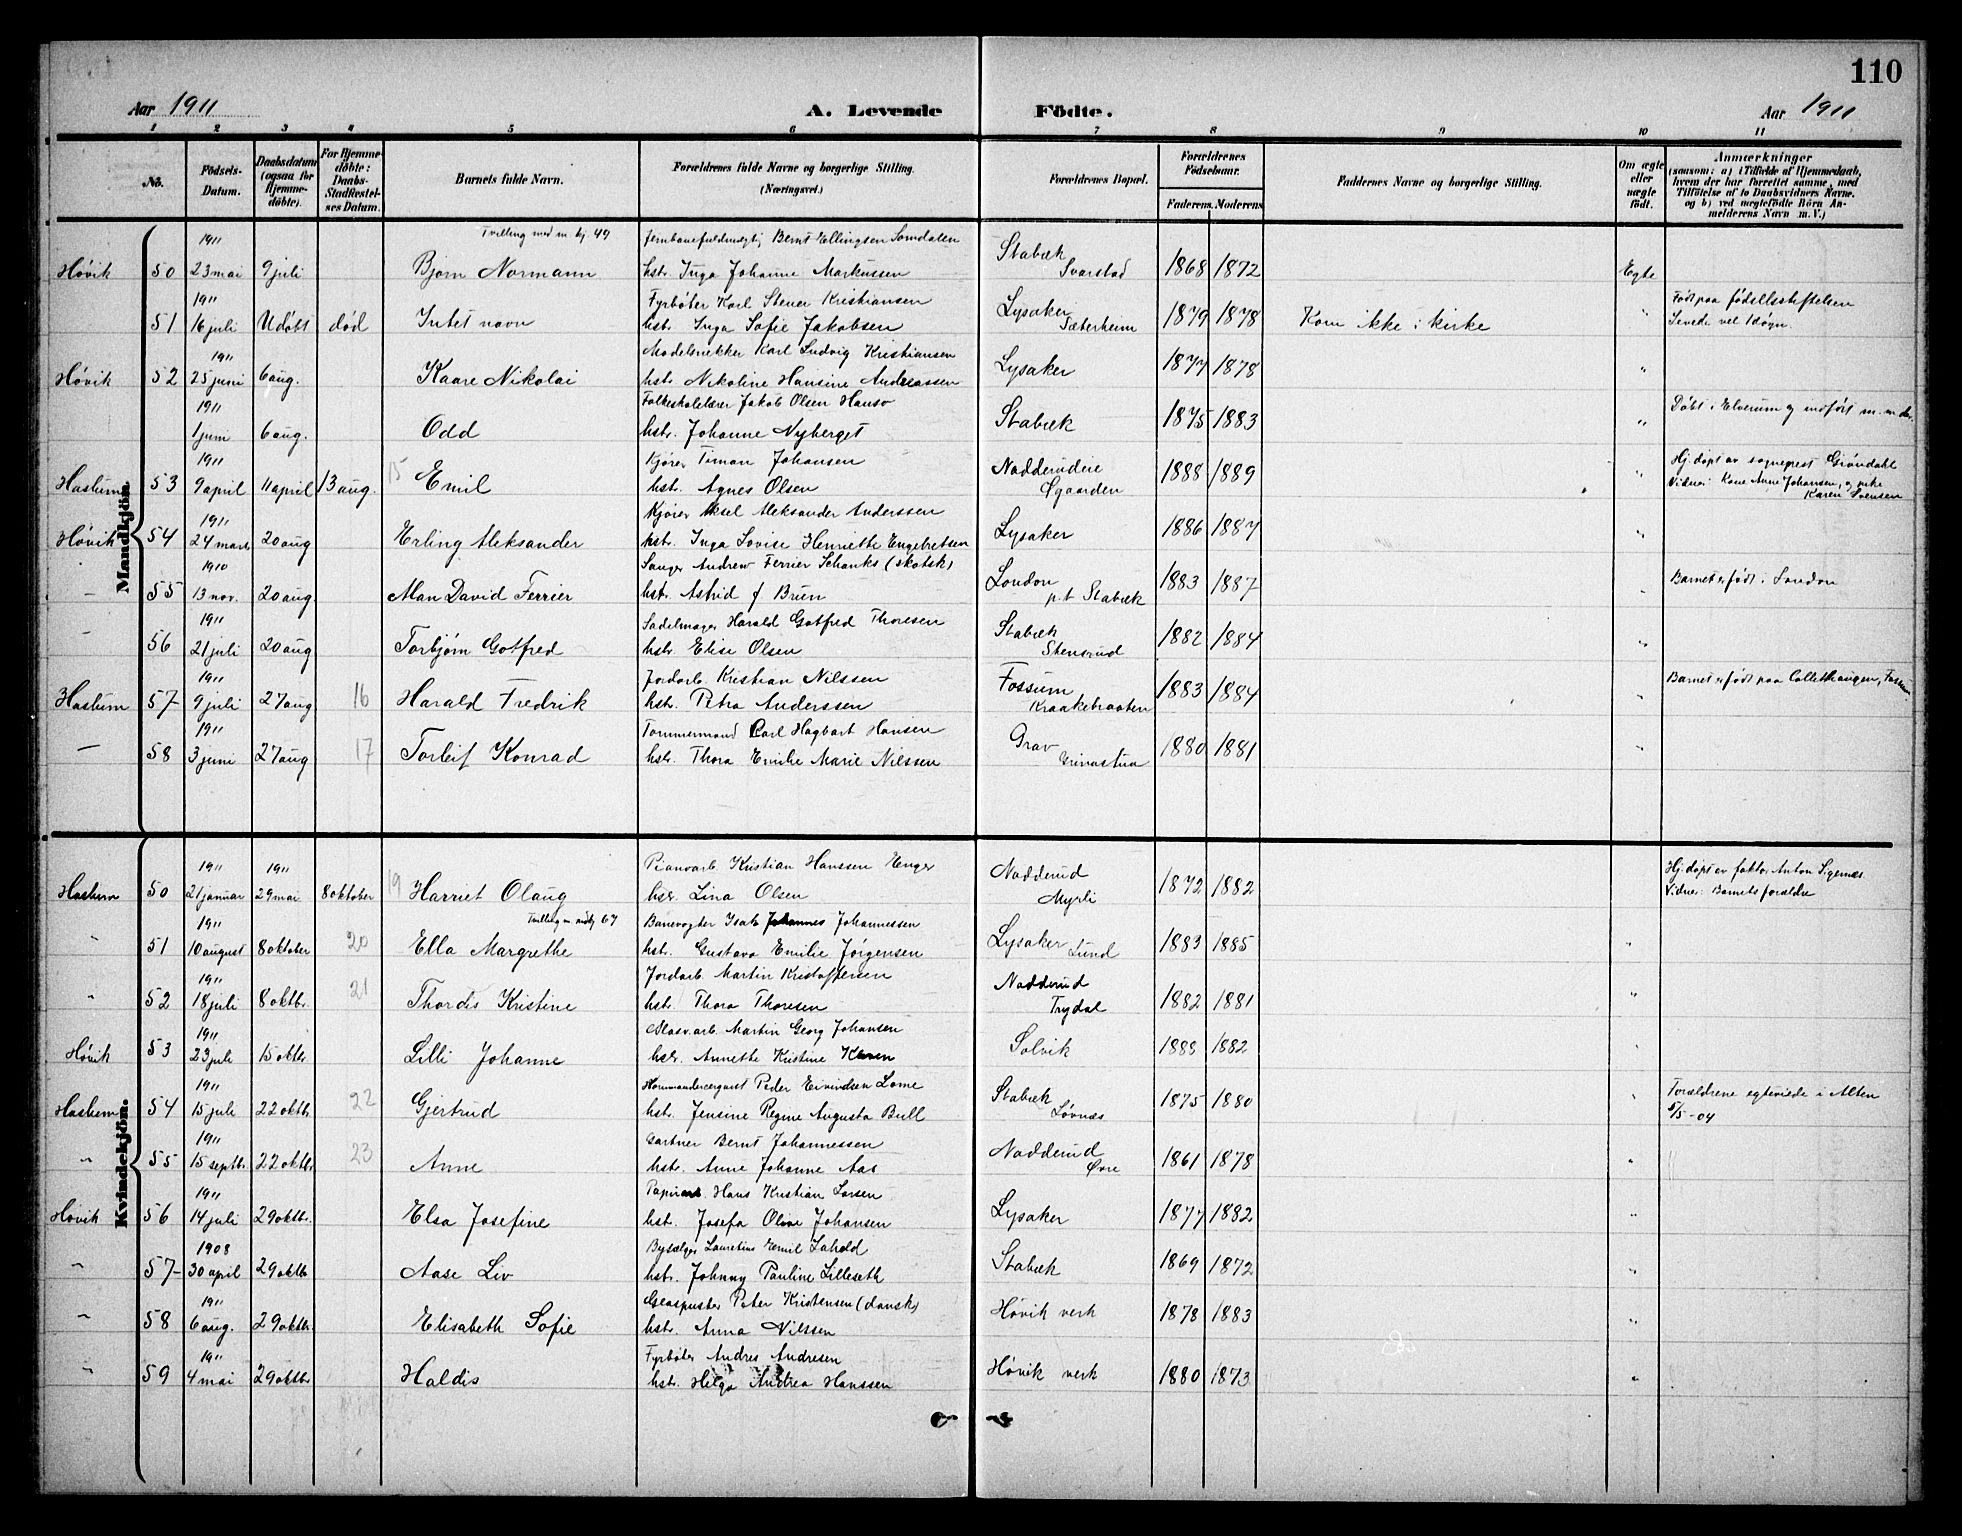 110
Aar 1911 A. Levende Födte. Aar 1911
1 2 3 4 5 6 7 8 9 10 11
No. Födsels-Datum. Daabsdatum (ogsaa for Hjemme-döbte). For Hjemme-döbte: Daabs-Stadfæstel-ses Datum. Barnets fulde Navn. Forældrenes fulde Navne og borgerlige Stilling. (Næringsvei.) Forældrenes Bopæl. Forældrenes Födselsaar. Faderens. Moderens. Faddernes Navne og borgerlige Stilling. Om ægte eller uægte födt. Anmærkninger (saasom: a) i Tilfælde af Hjemmedaab, hvem der har forrettet samme, med Tilföielse af to Daabsvidners Navne. og b) ved uægtefödte Börn An-melderens Navn m. V.)
Mandkjön.
1911 Tvilling med m kj 49 Jernbanefuldmægtig Bernt Ellingsen Somdalen Stabæk
Høvik 50 23 mai 9 juli Bjørn Normann hstr. Inga Johanne Markussen Svarstad 1868 1872 Egte
1911 Fyrbøter Karl Stener Kristiansen Lysaker Født paa fødselsstiftelsen
51 16 juli Udøbt død Intet navn hstr. Inga Sofie Jakobsen Sæterheim 1879 1878 Kom ikke i kirke " Levede vel 1 døgn.
1911 Modelsnekker Karl Ludvig Kristiansen
Høvik 52 25 juni 6 aug. Kaare Nikolai hstr. Nikoline Hansine Andreassen Lysaker 1877 1878 "
1911 Folkeskolelærer Jakob Olsen Hanso Døbt i Elverum og indført
1 juni 6 aug. Odd hstr. Johanne Nyberget Stabæk 1875 1883 "
1911 Kjører Timan Johansen Nadderudeie Hj. døpt av sogneprest Grøndahl
Haslum 53 9 april 11 april 13 aug. 15 Emil hstr. Agnes Olsen Øgaarden 1888 1889 " Vidner: Kone Anne Johansen, og enke Karen Svensen
1911 Kjører Aksel Aleksander Anderssen
Høvik 54 24 mars 20 aug Erling Aleksander hstr. Inga Lovise Henriette Engebretsen Lysaker 1886 1887 "
1910 Sanger Andrew Ferrier Schanks (skotsk) London Barnet er født i London
" 55 13 nov. 20 aug. Alan David Ferrier hstr. Astrid f Bruen p.t Stabæk 1883 1887 "
1911 Sadelmager Harald Gotfred Thoresen Stabæk
" 56 21 juli 20 aug Torbjørn Gotfred hstr. Elise Olsen Stensrud 1882 1884 "
1911 Jordarb. Kristian Nilssen Fossum Barnet er født paa Callethaugen, Fossum
Haslum 57 9 juli 27 aug 16 Harald Fredrik hstr. Petra Anderssen Kraakebraaten 1883 1884 "
1911 Tømmermand Carl Hagbart Hansen Grav
— 58 3 juni 27 aug 17 Torleif Konrad hstr. Thora Emilie Marie Nilssen Grinastua 1880 1881 "
Kvindekjön.
1911 1911 Pianoarb Kristian Hanssen Enger Nadderud Hj. døpt av faktor Anton Sigernæs
Haslum 50 21 januar 29 mai 8 oktober 19 Harriet Olaug hstr. Lina Olsen Myrli 1872 1882 Vidner: Barnets forældre
1911 Banevogter Isak Johannes Johannessen Lysaker
" 51 10 august 8 oktober 20 Ella Margrethe hstr. Gustava Emilie Jørgensen Lund 1883 1885 "
1911 Jordarb. Martin Kristoffersen Nadderud
" 52 18 juli 8 oktbr. 21 Thordis Kristine hstr. Thora Thoresen Trydal 1882 1881 "
1911 Glasv.arb. Martin Georg Johansen
Høvik 53 23 juli 15 oktbr Lilli Johanne hstr. Annette Kristine Solvik 1888 1882 "
1911 Kommandersergeant Peder Eivindsen Lome Stabæk Forældrene egteviede i Alten
Haslum 54 15 juli 22 oktbr 22 Gjertrud hstr. Jensine Regine Augusta Bull Løvnæs 1875 1880 " 5/5-04
1911 Gartner Bernt Johannessen Nadderud
" 55 15 septbr. 22 oktbr. 23 Anne hstr. Anne Johanne Aas Øvre 1861 1878 "
1911 Papirarb. Hans Kristian Larsen
Høvik 56 14 juli 29 oktbr. Elsa Josefine hstr. Josefa Olive Johansen Lysaker 1877 1882 "
1908 Bysælger Lauretius Emil
" 57 30 april 29 oktbr Aase Liv hstr. Johnny Pauline Lilleseth Stabæk 1869 1872 "
1911 Glaspuster Peter Kristensen (dansk)
" 58 6 aug. 29 oktbr. Elisabeth Sofie hstr. Anna Nilssen Høvik verk 1878 1883 "
1911 Fyrbøter Andres Andresen
" 59 4 mai 29 oktbr Haldis hstr. Helga Andrea Hanssen Høvik verk 1880 1873 "